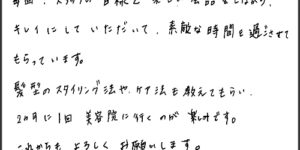 毎回、スタッフの皆様と楽しい会話をしながら、
キレイにしていただいて、素敵な時間を過ごさせて
もらっています。
髪型のスタイリング法や、ケア法も教えてもらい、
2ヵ月に1回 美容院に行くのが楽しみです。
これからも よろしく お願いします。